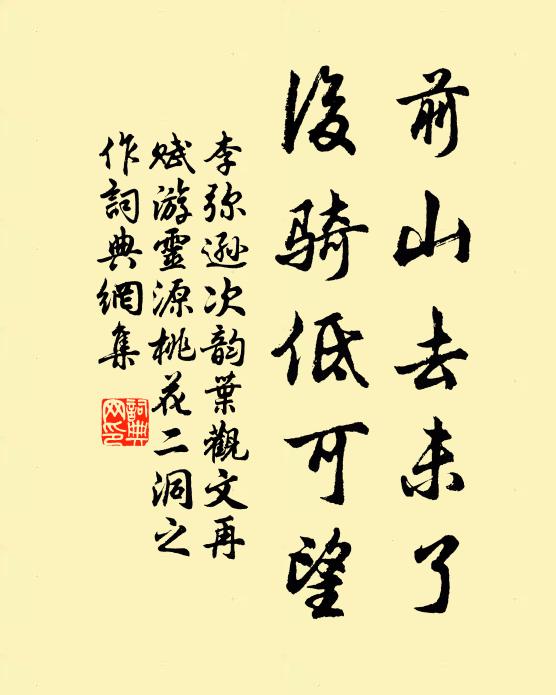 前山去未了
後骑低可望
李弥逊次韵葉觀文再
赋游靈源桃花二洞之
作詞典網集
詞典网印